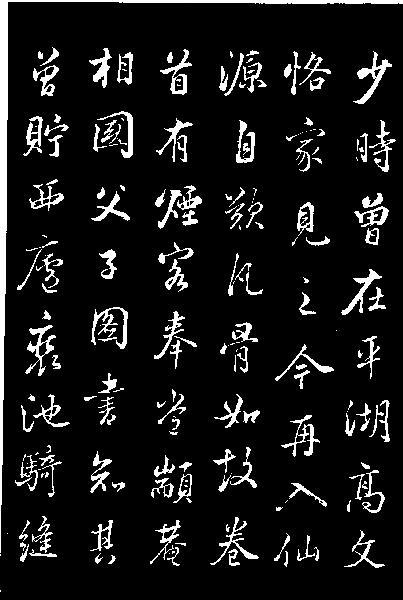 少時曾在平湖高文
恪家見之今再入仙
源自歎凡骨如故卷
首有煙客奉常顓菴
相國父子圖書知其
曾貯西廬池騎縫